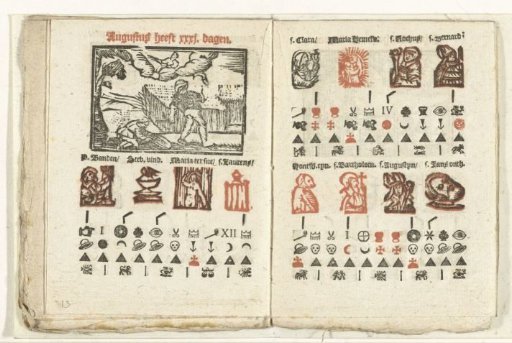 Augustus heeft xxxj. dagen.
P. Banden/ Stev. vind. Maria ter snee/ s. Laurens/
I XII
s. Clara/ Maria Hemelv. s. Rochus/ s. Bernard9
IV
s. Bartholom. s. Augustyn/ s. Jans onth.
I
13